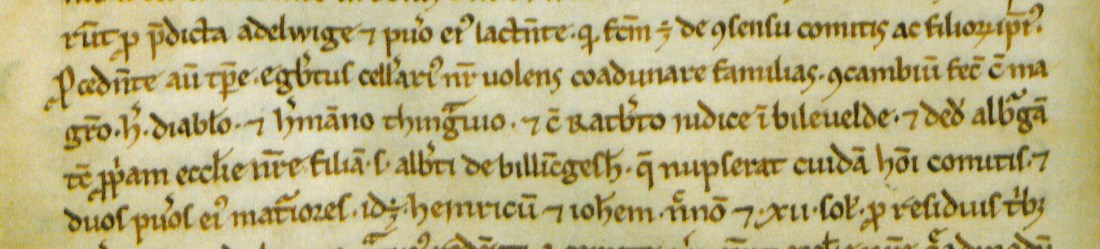 rūt ꝓ p̄dicta adelwige ⁊ puo̓ ei᾿ lactn̄te. q̇ fc̄m ē de ꝯsensu comitis ac filioꝝ ipi᾿.
Ꝓcedn̄te aū tp̄e. egb̓tus cell̓ari᾿ nr̄ uolens coadunare familias. ꝯcambiū fec̄ c̄ ma
gr̄o. h̓. diabło. ⁊ h̓māno thingᷓuio. ⁊ c̄ ratb̓to iudice ī bileuelde. ⁊ ded̓ albᷓgā
tē ꝓp̓am eccłie nr̄e filiā. s. alb̓ti de billīcgesħ. q̄ nupserat cuidā hōi comitis. ⁊
duos pu̓os ei᾿ matᷓiores. id ē. heinricū ⁊ ioħem. n̄ nō ⁊ .xii. soł. ꝓ residuis tⁱbꝫ